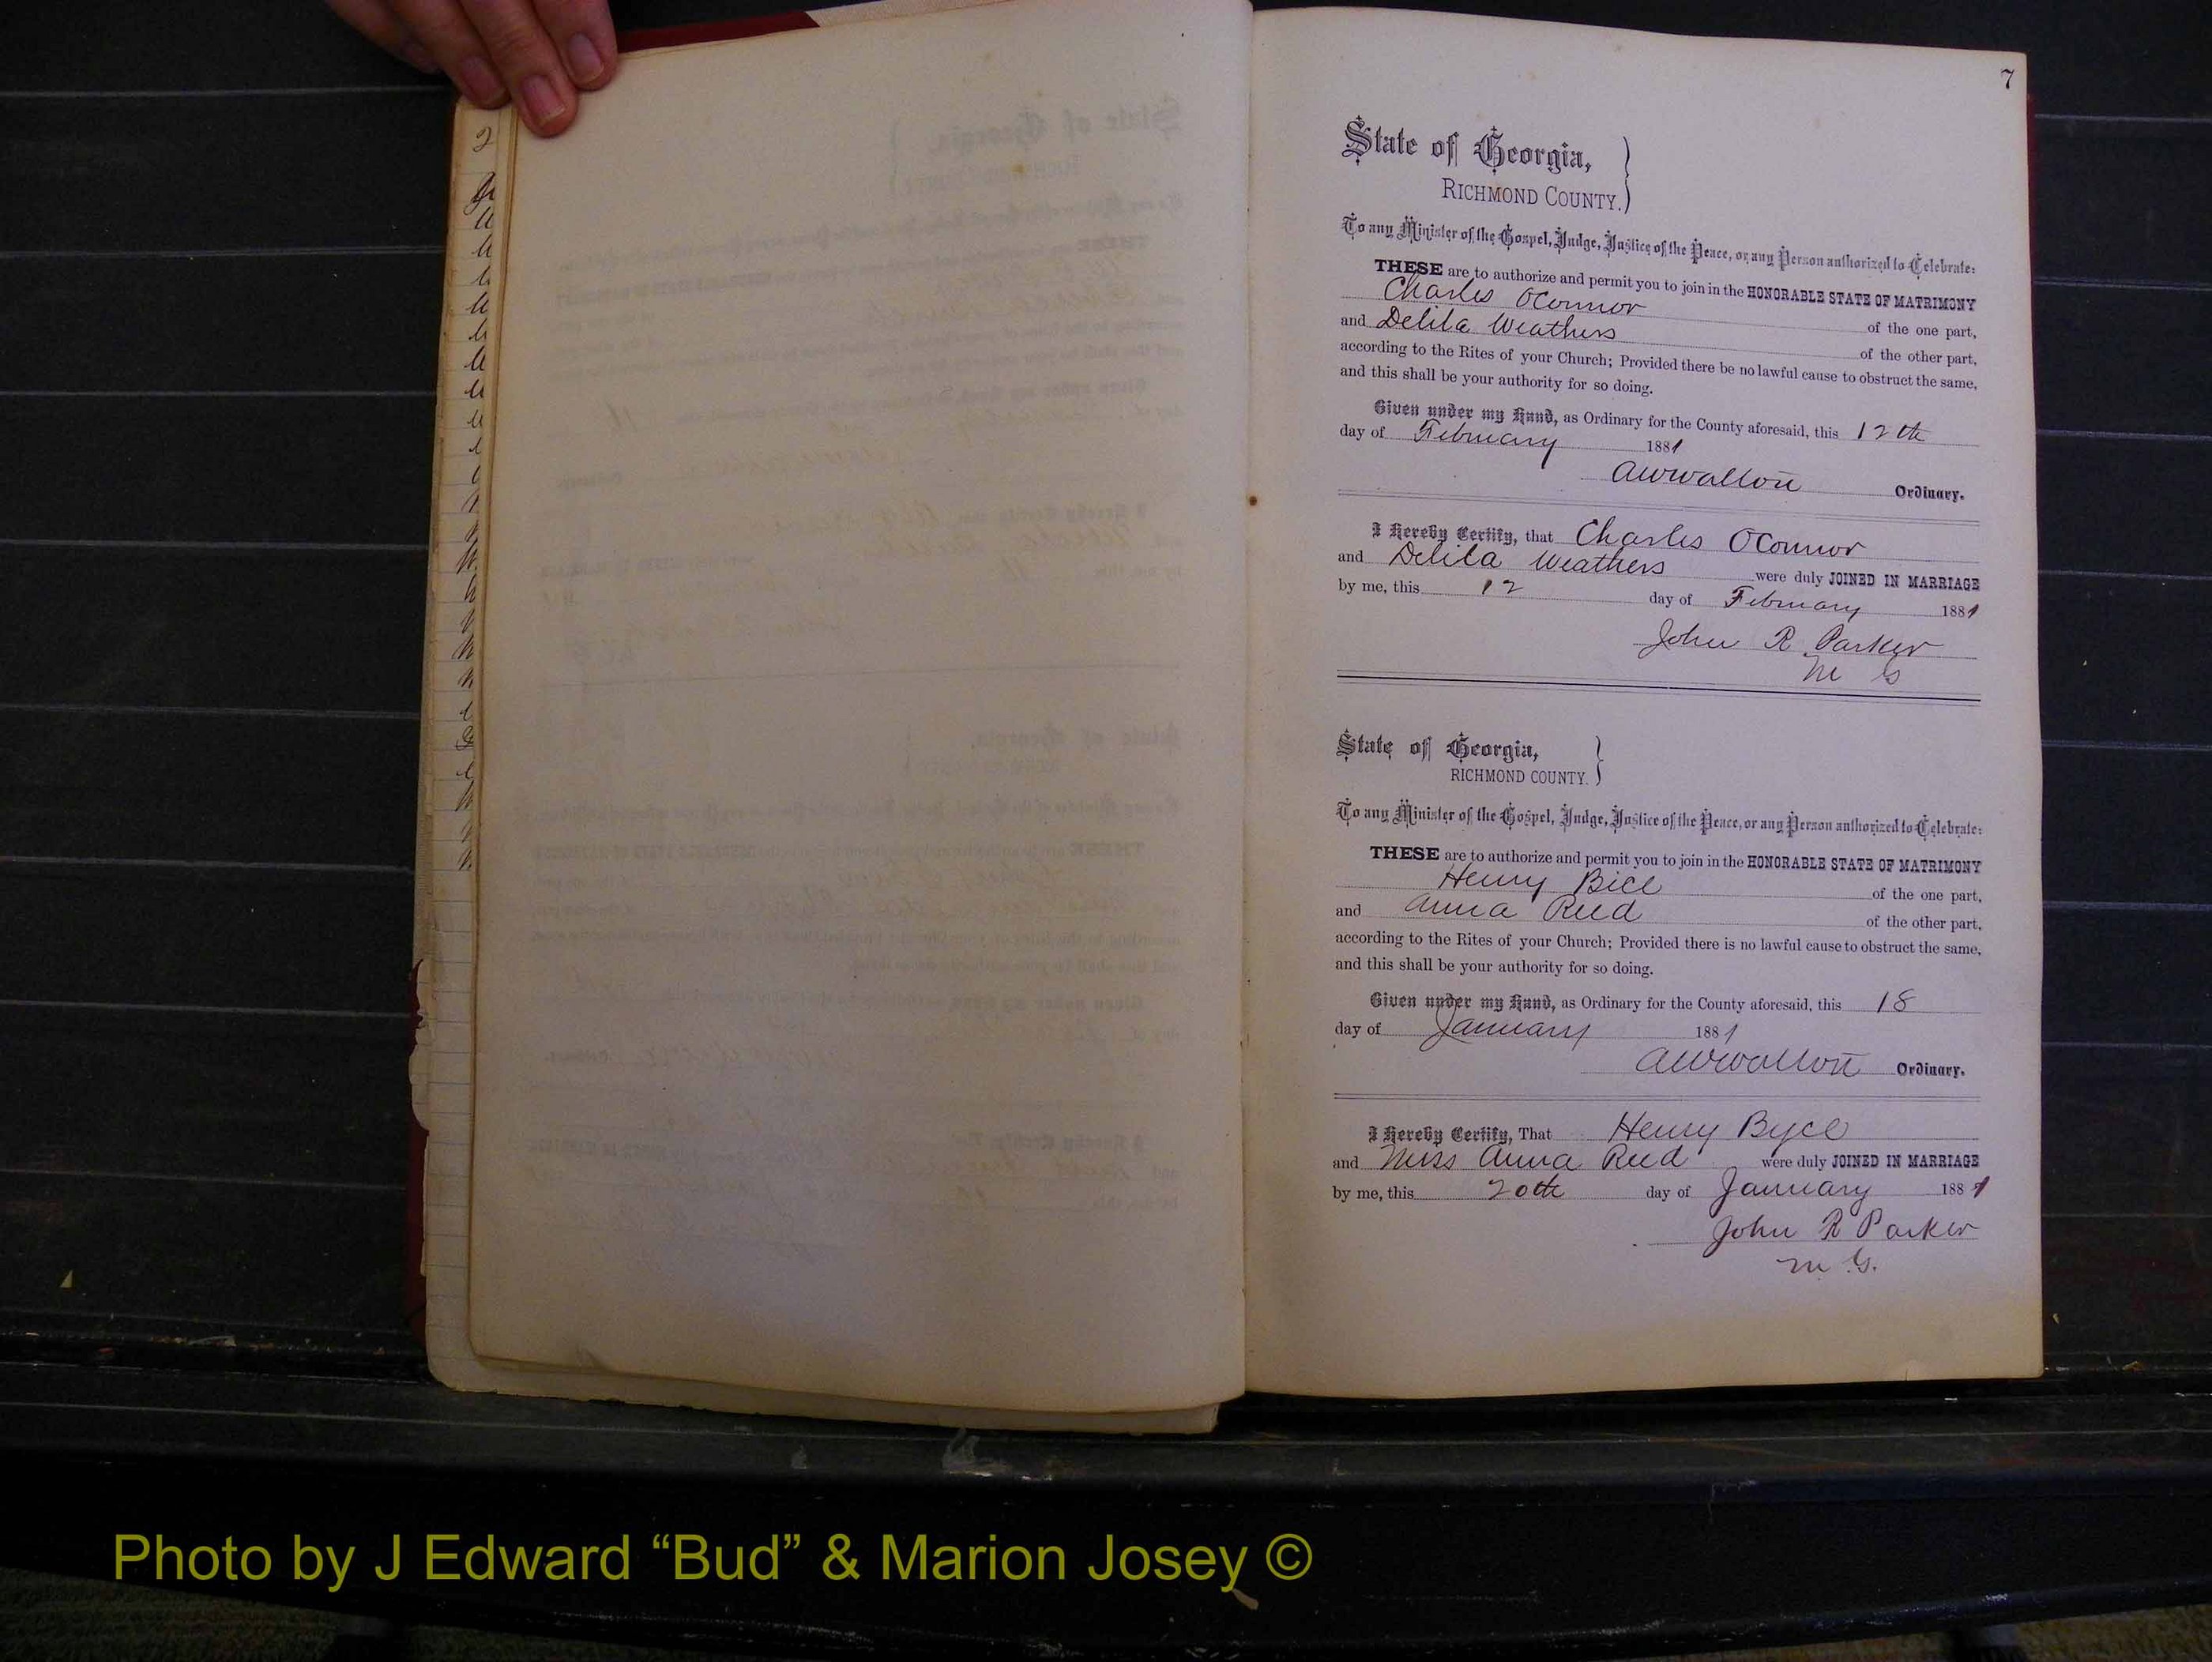 7
State of Georgia,
RICHMOND COUNTY.
To any Minister of the Gospel, Judge, Justice of the Peace, or any Person authorized to Celebrate:
THESE are to authorize and permit you to join in the HONORABLE STATE OF MATRIMONY
Charles OConnor of the one part,
and Delila Weathers of the other part,
according to the Rites of your Church; Provided there be no lawful cause to obstruct the same,
and this shall be your authority for so doing.
Given under my Hand, as Ordinary for the County aforesaid, this 12th
day of February 1881
AWWalton Ordinary.
I Hereby Certify, that Charles OConnor
and Delila Weathers were duly JOINED IN MARRIAGE
by me, this 12 day of February 1881
John R Parker
M G
State of Georgia,
RICHMOND COUNTY.
To any Minister of the Gospel, Judge, Justice of the Peace, or any Person authorized to Celebrate:
THESE are to authorize and permit you to join in the HONORABLE STATE OF MATRIMONY
Henry Bice of the one part,
and Anna Reed of the other part,
according to the Rites of your Church; Provided there is no lawful cause to obstruct the same,
and this shall be your authority for so doing.
Given under my Hand, as Ordinary for the County aforesaid, this 18
day of January 1881
AWWalton Ordinary.
I Hereby Certify, That Henry Byce
and Miss Anna Reed were duly JOINED IN MARRIAGE
by me, this 20th day of January 1881
John R Parker
M G.
Photo by J Edward “Bud” & Marion Josey ©